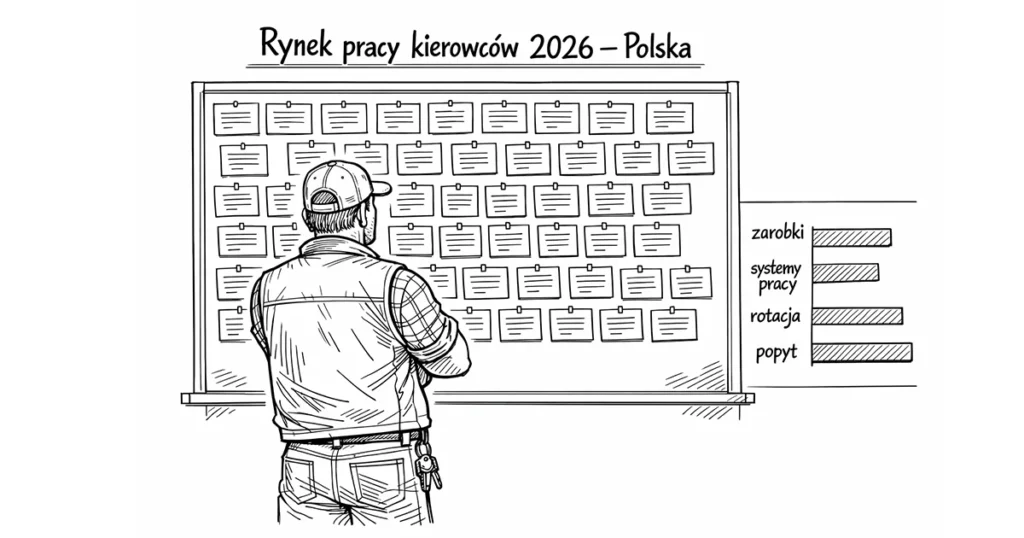 Rynek pracy kierowców 2026 – Polska
zarobki
systemy
pracy
rotacja
popyt